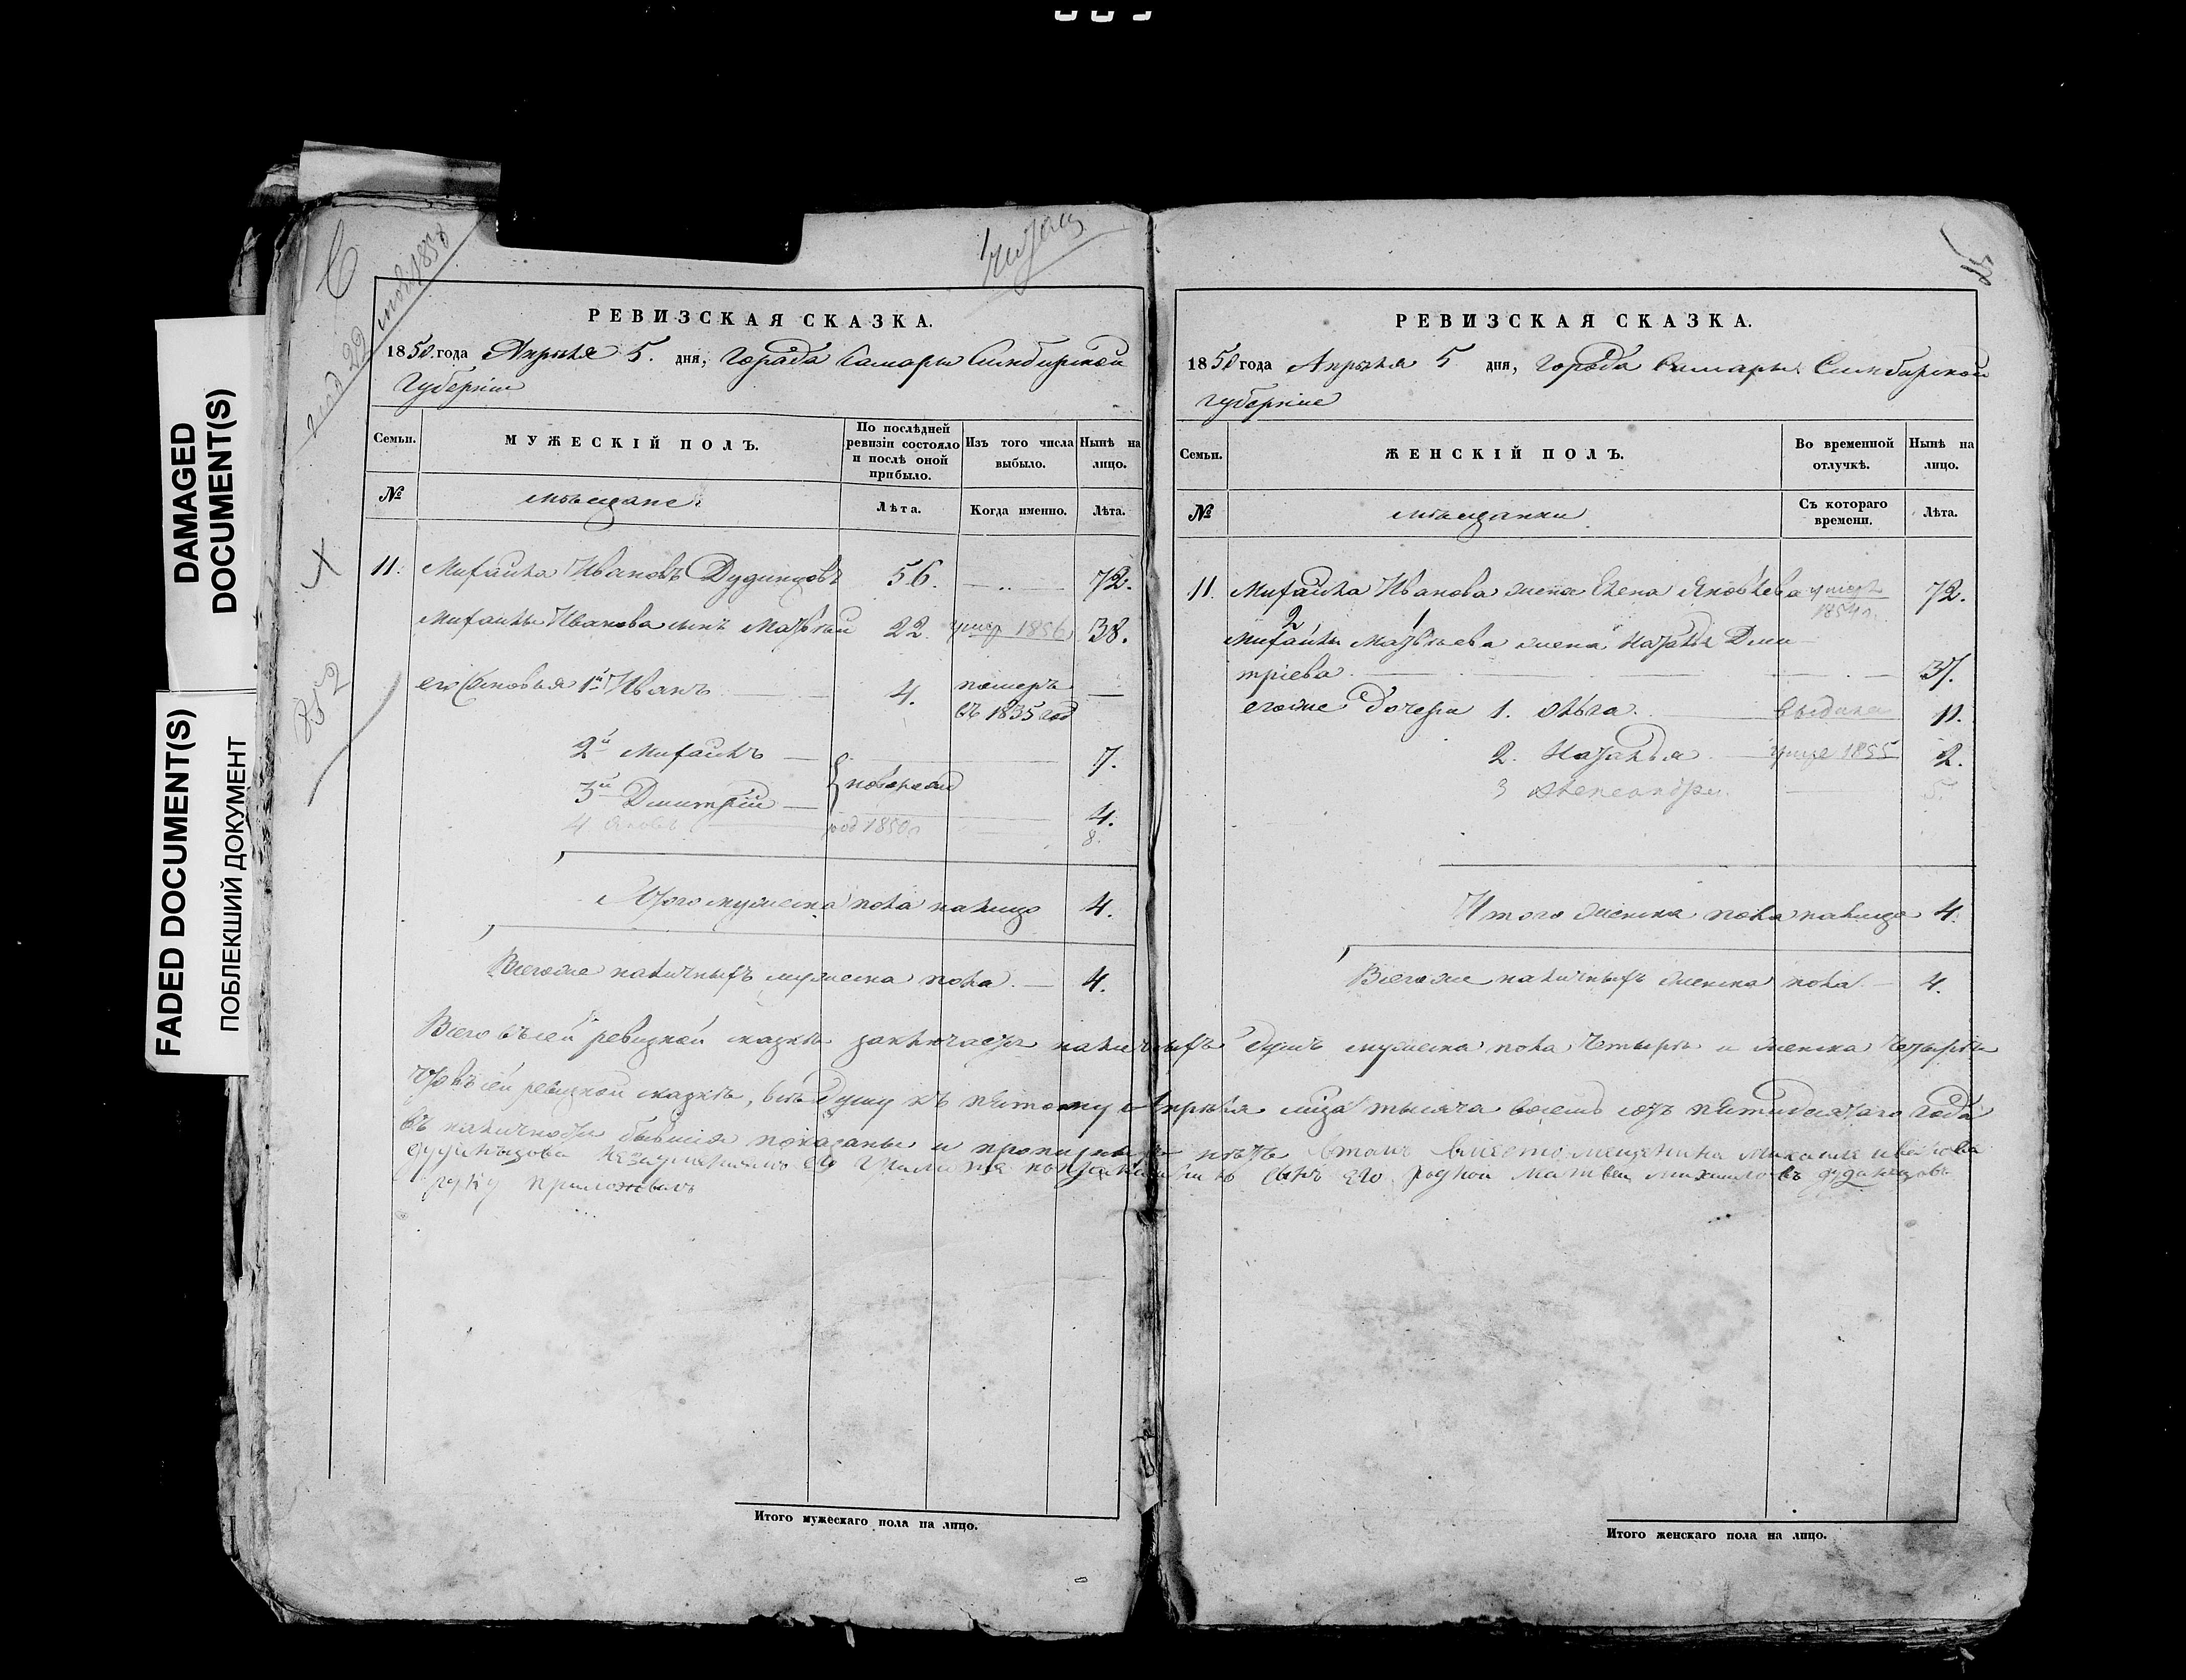 DAMAGED
DOCUMENT(S)
FADED DOCUMENT(S)
ПОБЛЕКШИЙ ДОКУМЕНТ
852
РЕВИЗСКАЯ СКАЗКА.
1850 года Апрѣля 5. дня, Города Самары Симбирской
Губерніи
Семьи.
МУЖЕСКІЙ ПОЛЪ.
По послѣдней ревизіи состояло и послѣ оной прибыло.
Изъ того числа выбыло.
Нынѣ на лицо.
№
мѣщане.
Лѣта.
Когда именно.
Лѣта.
11. Михайла Ивановъ Дудинцовъ 56. 72.
Михайлы Иванова сынъ Матвей 22. умер 1856 38.
его Сыновья 1й Иванъ 4. померъ
въ 1835 год
2й Михайлъ 7.
3й Дмитрій 4.
4 Яковъ род 1850 8.
Итого мужеска пола налицо 4.
Всегоже наличныхъ мужеска пола. 4.
РЕВИЗСКАЯ СКАЗКА.
1850 года Апрѣля 5 дня, Города Самары Симбирской
губерніи
Семьи.
ЖЕНСКІЙ ПОЛЪ.
Во временной отлучкѣ.
Нынѣ на лицо.
№
мѣщанки
Съ котораго времени.
Лѣта.
11. Михайла Иванова жена Елена Яковлева умерла 72.
1854 г.
2 1
Михайлы Матвѣева жена Наталья Дми
тріева 37.
егоже дочери 1. Ольга. выдана 11.
2. Наталья 1855 2.
3 Александра 5.
Итого женска пола налицо 4.
Всегоже наличныхъ женска пола 4.
Всего въ сей ревизкой сказкѣ заключается наличныхъ душъ мужеска пола Четыре и женска Четыре
Что въ сей ревизкой сказкѣ, всѣ душу къ пятому Апрѣля тысяча восемь сотъ пятидесятаго года
въ наличности бывшія показаны и прописныхъ нѣтъ вместо мещанина михаила иванова
дудинцова его сынъ его родной матвей михаиловъ дудинцовъ
руку приложилъ
Итого мужескаго пола на лицо.
Итого женскаго пола на лицо.